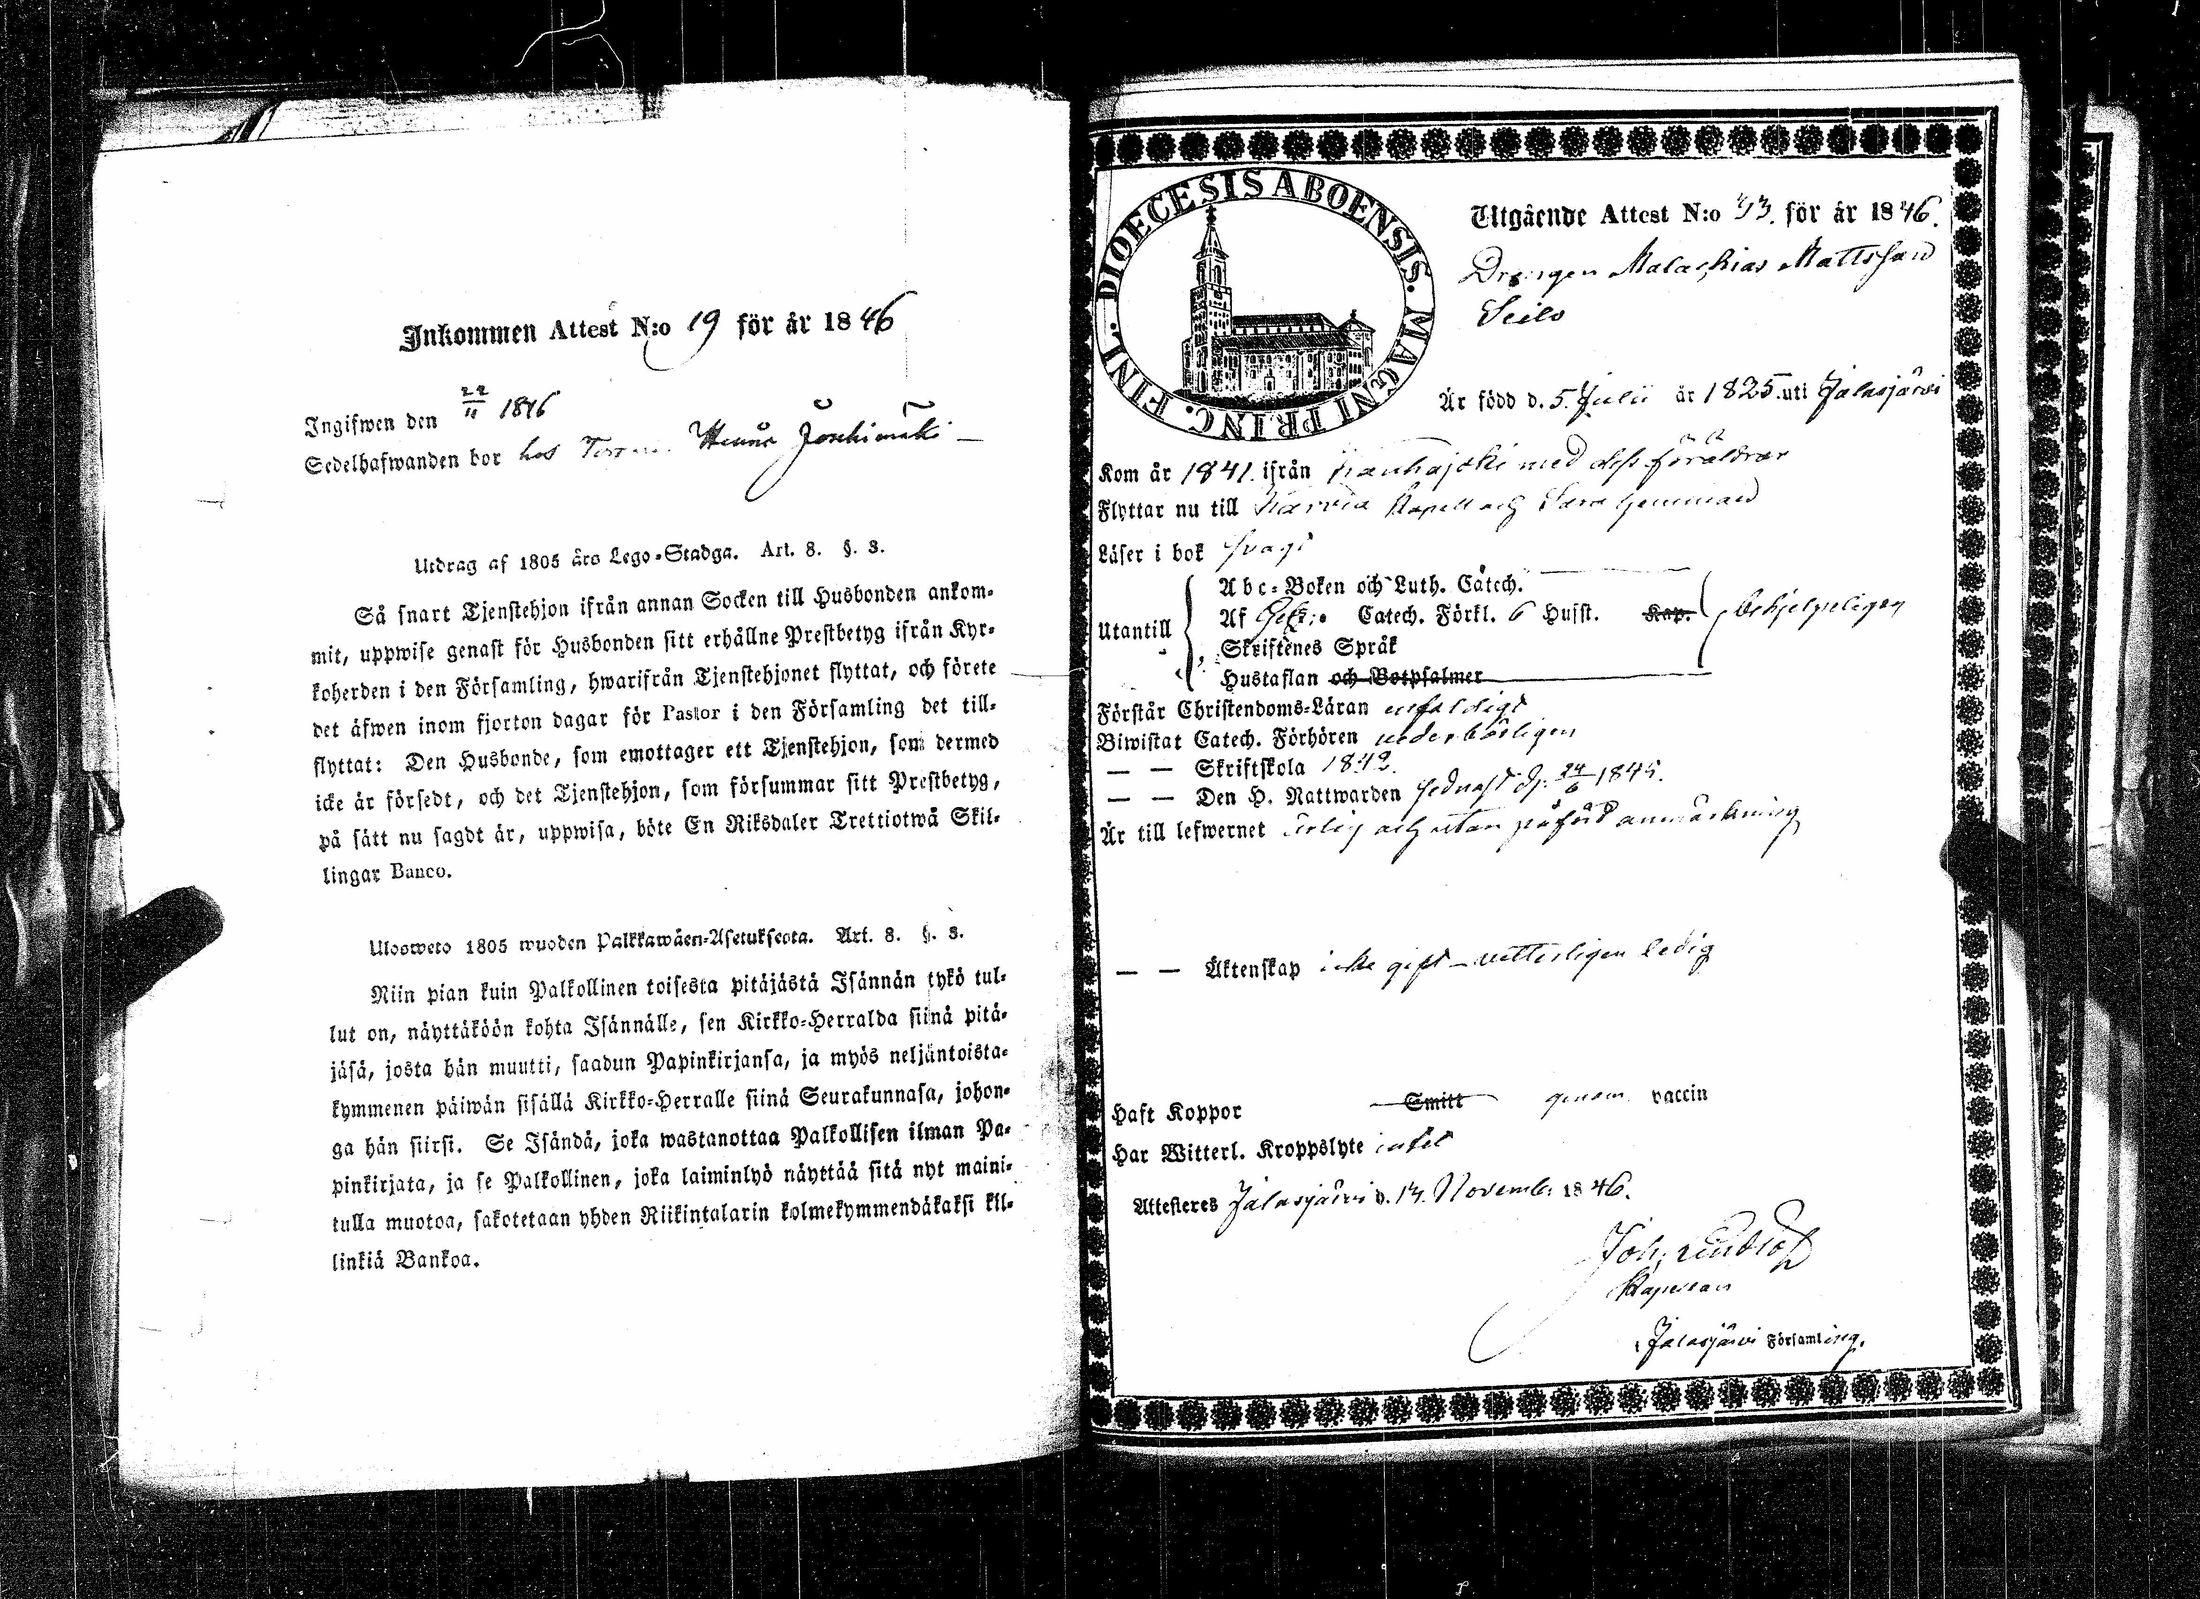 Inkommen Attest N:o 19 för år 1846
Ingifwen den 22/11 1846
Sedelhafwanden bor hos
Utdrag af 1805 års Lego-Stadga. Art. 8. §. 3.
Så snart Tjenstehjon ifrån annan Socken till Husbonden ankom-
mit, uppwise genast för Husbonden sitt erhållne Prestbetyg ifrån Kyr-
koherden i den Församling, hwarifrån Tjenstehjonet flyttat, och förete
det äfwen inom fjorton dagar för Pastor i den Församling det till-
flyttat: Den Husbonde, som emottager ett Tjenstehjon, som dermed
icke är försedt, och det Tjenstehjon, som försummar sitt Prestbetyg,
på sätt nu sagdt är, uppwisa, böte En Riksdaler Trettiotwå Skil-
lingar Banco.
Ulosweto 1805 wuoden Palkkawäen-Asetuksesta. Art. 8. §. 3.
Niin pian kuin Palkollinen toisesta pitäjästä Isännän tykö tul-
lut on, näyttäköön kohta Isännälle, sen Kirkko-Herralda siinä pitä-
jäsä, josta hän muutti, saadun Papinkirjansa, ja myös neljäntoista-
kymmenen päiwän sisällä Kirkko-Herralle siinä Seurakunnasa, johon-
ga hän siirsi. Se Isändä, joka wastanottaa Palkollisen ilman Pa-
pinkirjata, ja se Palkollinen, joka laiminlyö näyttää sitä nyt maini-
tulla muotoa, sakotetaan yhden Riikintalarin kolmekymmendäkaksi kil-
linkiä Bankoa.
DIOECESIS ABOENSIS. MAGNI PRINC. FINL.
Utgående Attest N:o 93. för år 1846.
Drängen Malachias Mattsson
Seilo
Är född d. 5. Julii år 1825. uti Jalasjärvi
Kom år 1841. ifrån Kauhajoki med dess föräldrar
Flyttar nu till Karvia Kapell och
Läser i bok svagt
Abc-Boken och Luth. Catech.
Utantill Af Catech. Förkl. 6 Husst. Kap. behjelpeligen
Skriftenes Språk
Hustaflan och Botpsalmer
Förstår Christendoms-Läran enfaldigt
Biwistat Catech. Förhören vederbörligen
— — Skriftskola 1842.
— — Den H. Nattwarden sednast d. 24/6 1845.
Är till lefwernet ärlig och utan påförd anmärkning
— — Äktenskap icke gift – vetterligen ledig
Haft Koppor Smitt genom vaccin
Har Witterl. Kroppslyte intet
Attesteres Jalasjärvi d. 14. Novemb: 1846.
Joh. Lindlöf
Kapellan
i Jalasjärvi Församling.